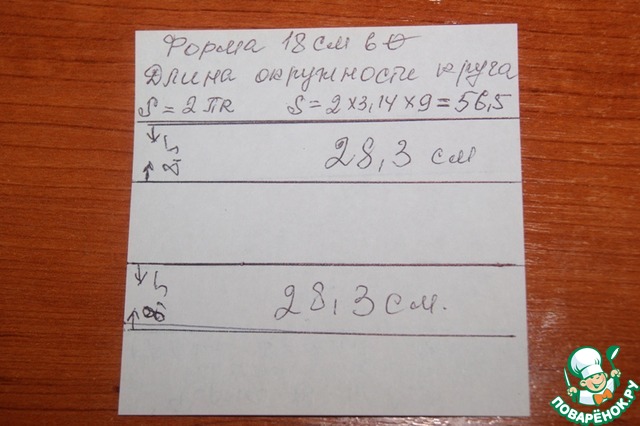 Форма 18 см в ∅
Длина окружности круга
S = 2πR S = 2×3,14×9=56,5
2,5 28,3 см
2,5 28,3 см.
ПОВАРЁНОК.РУ